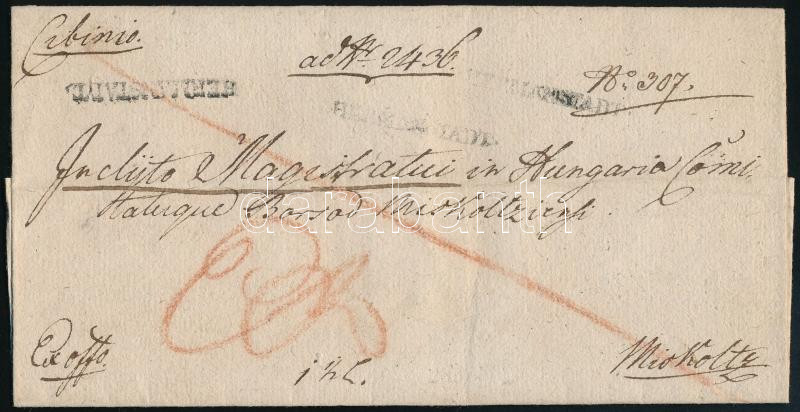 Cibinio.
ad Nr. 2436.
No. 307.
HERMANSTADT.
HERMANSTADT.
HERMANSTADT.
Inclyto Magistratui in Hungaria Comi
tatuque Borsod Miskoltziensi.
darabanth
Ex offo.
Miskoltz